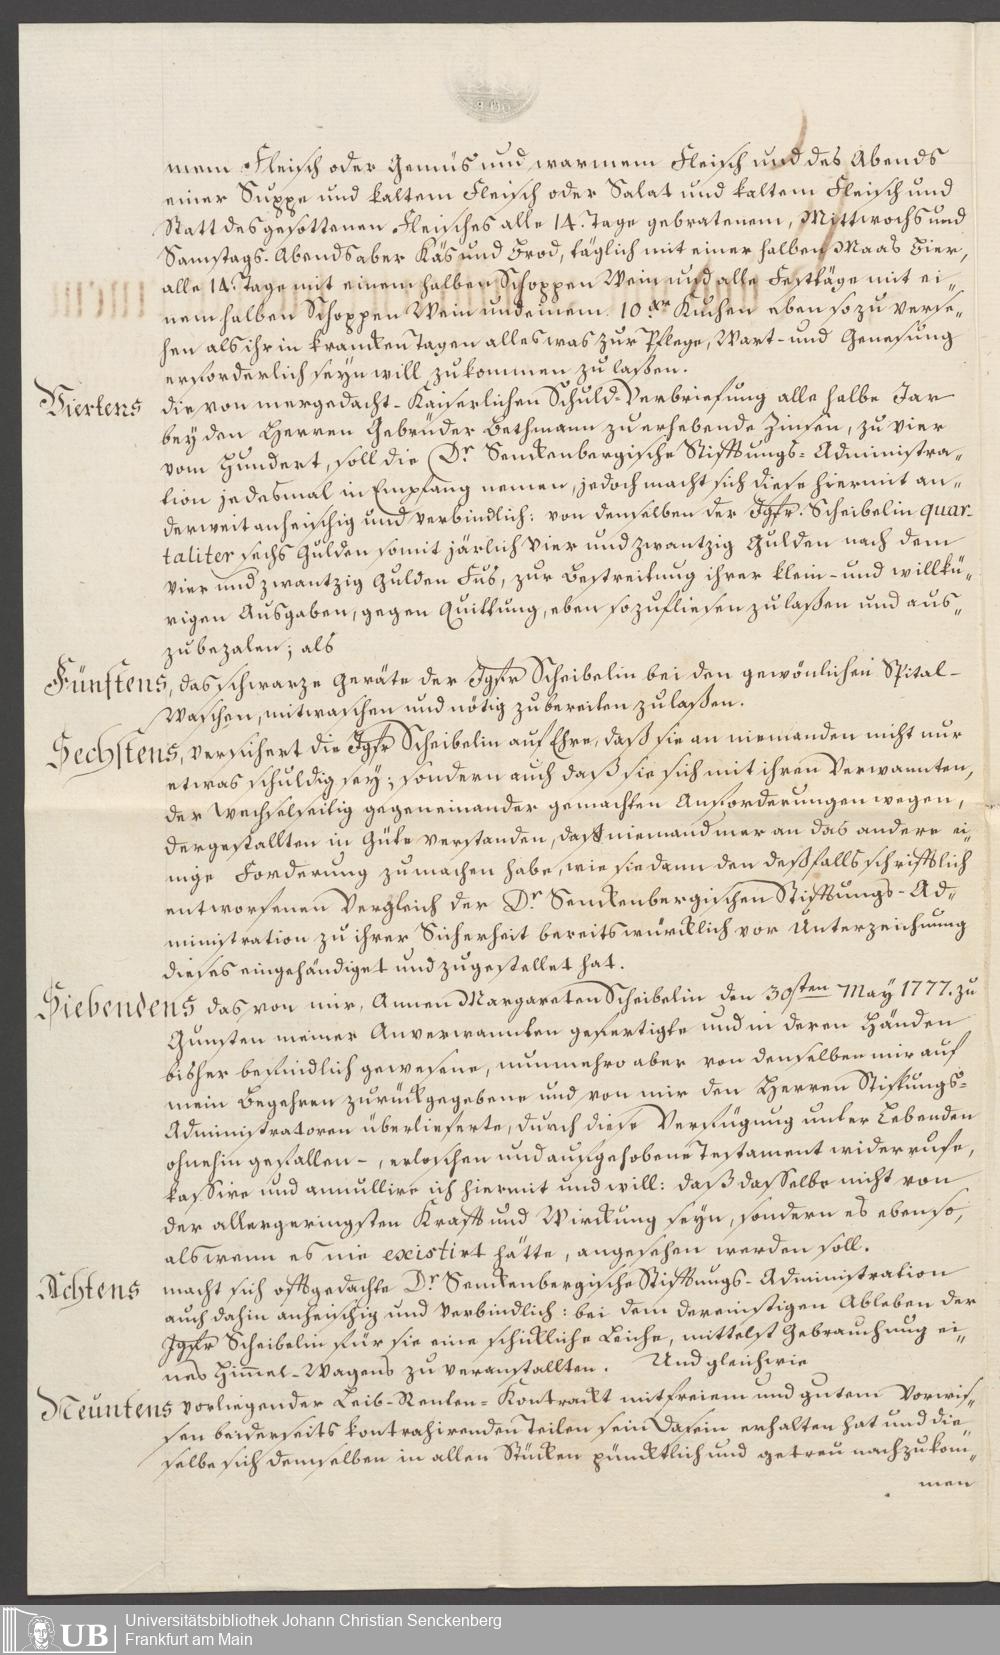 mem Fleisch oder Gemüs und warmem Fleisch und des Abends
einer Suppe und kaltem Fleisch oder Salat und kaltem Fleisch und
Statt des gesottenen Fleisches alle 14. Tage gebratenem, Mittwochs und
Samstags-Abends aber Käs und Brod, täglich mit einer halben Maas Bier,
alle 14. Tage mit einem halben Schoppen Wein und alle Festtäge mit ei„
nem halben Schoppen Wein und einem 10 xr Kuchen eben so zu verse„
hen als ihr in krancken Tagen alles was zur Pflege, Wart- und Genesung
erforderlich seyn will zukommen zu laßen.
Viertens die von mergedacht-Kaiserlichen Schuld-Verbriefung alle halbe Jar
bey den Herren Gebrüder Bethmann zu erhebende Zinsen, zu vier
vom Hundert, soll die Dr. Senckenbergische Stifftungs-Administra„
tion jedesmal in Empfang nemen, jedoch macht sich diese hiermit an„
derweit anheischig und verbindlich: von denselben der Jgfr. Scheibelin quar-
taliter sechs Gulden somit järlich vier und zwantzig Gulden nach dem
vier und zwantzig Gulden Fus, zur Bestreitung ihrer klein- und willkü„
rigen Ausgaben, gegen Quittung, eben so zufliesen zu laßen und aus„
zubezalen; als
Fünftens, das schwarze Geräte der Jgfr Scheibelin bei den gewönlichen Spital-
Waschen, mitwaschen und nötig zubereiten zu laßen.
Sechstens, versichert die Jgfr Scheibelin auf Ehre, daß sie an niemanden nicht nur
etwas schuldig sey; sondern auch daß sie sich mit ihren Verwannten,
der wechselseitig gegeneinander gemachten Anforderungen wegen,
dergestallten in Güte verstanden, daß niemand mer an das andere ei„
nige Forderung zu machen habe, wie sie dann den deßfalls schrifftlich
entworfenen Vergleich der Dr. Senckenbergischen Stifftungs-Ad„
ministration zu ihrer Sicherheit bereits würcklich vor Unterzeichnung
dieses eingehändiget und zugestellet hat.
Siebendens das von mir, Annen Margareten Scheibelin den 30sten May 1777. zu
Gunsten meiner Anverwannten gefertigte und in deren Händen
bisher befindlich gewesene, nunmehro aber von denselben mir auf
mein Begehren zurückgegebene und von mir den Herren Stiftungs-
Administratoren überlieferte, durch diese Verfügung unter Lebenden
ohnehin gefallen-, erloschen und aufgehobene Testament widerrufe,
kassire und annullire ich hiermit und will: daß dasselbe nicht von
der allergeringsten Krafft und Wirckung seyn, sondern es ebenso,
als wenn es nie existirt hätte, angesehen werden soll.
Achtens macht sich offtgedachte Dr. Senckenbergische Stifftungs-Administration
auch dahin anheischig und verbindlich: bei dem dereinstigen Ableben der
Jgfr Scheibelin für sie eine schickliche Leiche, mittelst Gebrauchung ei„
nes Him̄el-Wagens zu veranstallten. Und gleichwie
Neuntens vorliegender Leib-Renten-Kontrackt mit freiem und gutem Vorwis„
sen beiderseits kontrahirenden Teilen sein Dasein erhalten hat und die
selbe sich demselben in allen Stücken pünktlich und getreu nachzukom̄„
men
UB
Universitätsbibliothek Johann Christian Senckenberg
Frankfurt am Main